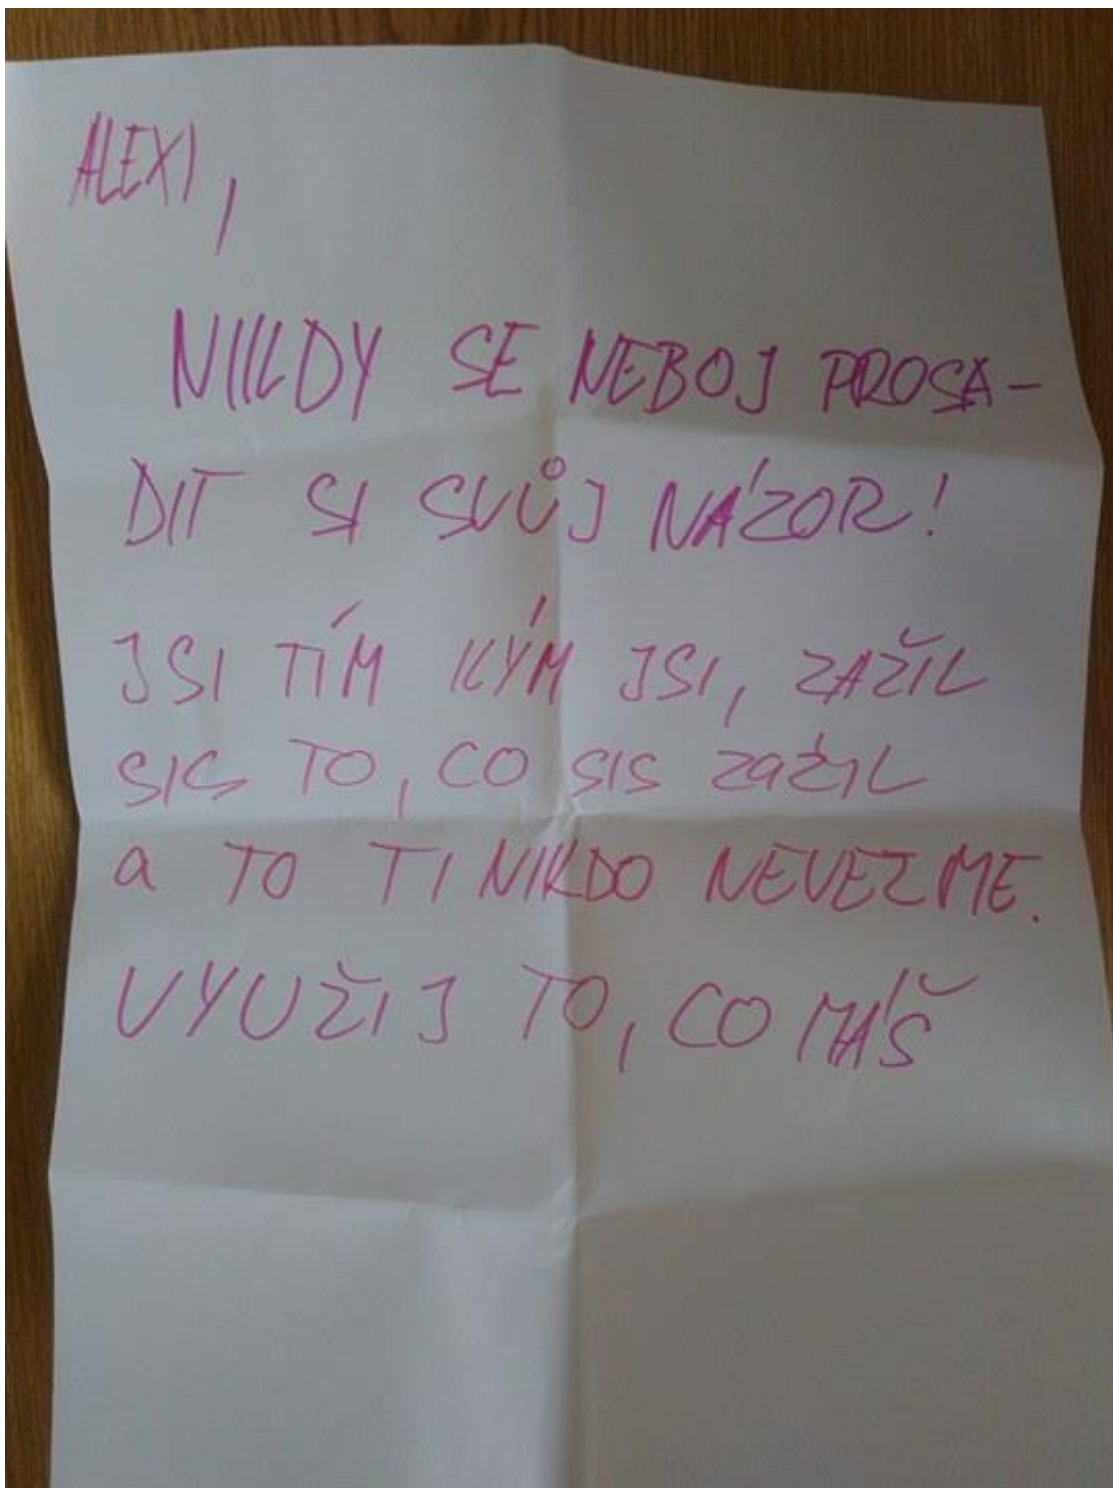 ALEXI,
NIKDY SE NEBOJ PROSA-
DIT SI SVŮJ NÁZOR!
JSI TÍM KÝM JSI, ZAŽIL
SIS TO, CO SIS ZAŽIL
a TO TI NIKDO NEVEZME.
VYUŽIJ TO, CO MÁŠ